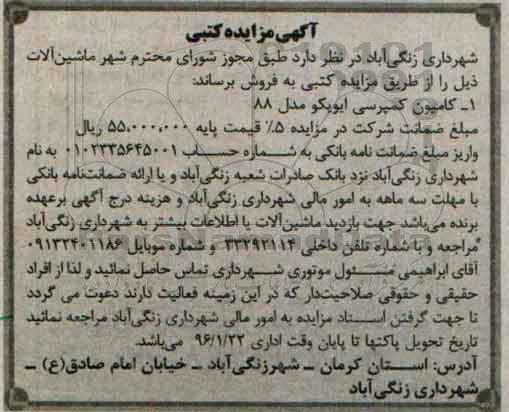 آگهی مزایده کتبی
شهرداری زنگی‌آباد در نظر دارد طبق مجوز شورای محترم شهر ماشین‌آلات
ذیل را از طریق مزایده کتبی به فروش برساند:
۱ـ کامیون کمپرسی ایویکو مدل ۸۸
مبلغ ضمانت شرکت در مزایده ۵٪ قیمت پایه ۵۵,۰۰۰,۰۰۰ ریال
واریز مبلغ ضمانت نامه بانکی به شماره حساب ۰۱۰۲۳۳۵۶۴۵۰۰۱ به نام
شهرداری زنگی‌آباد نزد بانک صادرات شعبه زنگی‌آباد و یا ارائه ضمانت‌نامه بانکی
با مهلت سه ماهه به امور مالی شهرداری زنگی‌آباد و هزینه درج آگهی برعهده
برنده می‌باشد جهت بازدید ماشین‌آلات یا اطلاعات بیشتر به شهرداری زنگی‌آباد
مراجعه و با شماره تلفن داخلی ۳۳۲۹۲۱۱۴ و شماره موبایل ۰۹۱۳۲۴۰۱۱۸۶
آقای ابراهیمی مسئول موتوری شهرداری تماس حاصل نمائید و لذا از افراد
حقیقی و حقوقی صلاحیت‌دار که در این زمینه فعالیت دارند دعوت می گردد
تا جهت گرفتن اسناد مزایده به امور مالی شهرداری زنگی‌آباد مراجعه نمائید
تاریخ تحویل پاکتها تا پایان وقت اداری ۹۶/۱/۲۲ می‌باشد.
آدرس: استان کرمان ـ شهرزنگی‌آباد ـ خیابان امام صادق(ع) ـ
شهرداری زنگی‌آباد